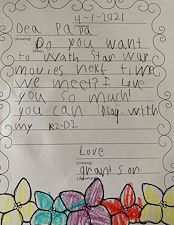 4-1-2021
Dea Papa
(Greeting)
Do you want
to wath Star war
movies next time
we meet? I Love
you so much!
you can play with
my R2-D2
Love
(Closing)
grand son